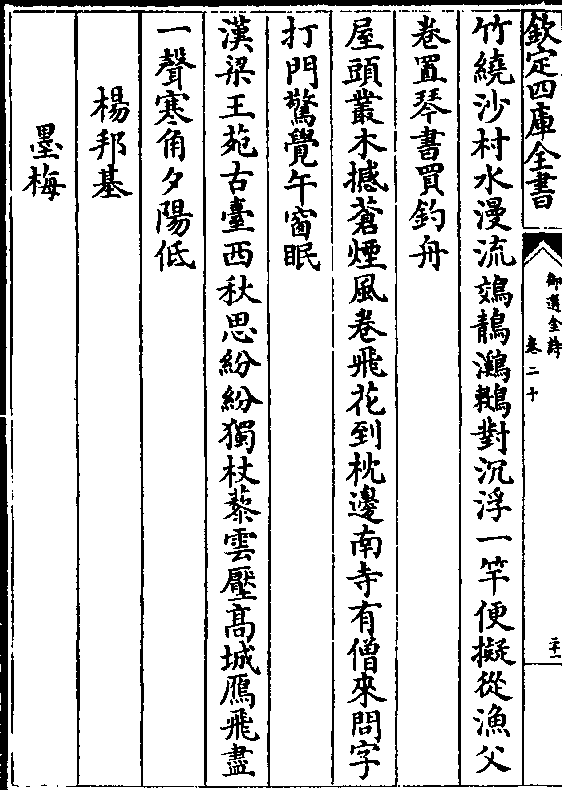 欽定四庫全書
御選金詩
卷二十
二十一
竹繞沙村水漫流鵁鶄鸂鶒對沉浮一竿便擬從漁父
卷置琴書買釣舟
屋頭叢木撼蒼煙風卷飛花到枕邊南寺有僧來問字
打門驚覺午窗眠
漢梁王苑古臺西秋思紛紛獨杖藜雲壓高城鴈飛盡
一聲寒角夕陽低
楊邦基
墨梅